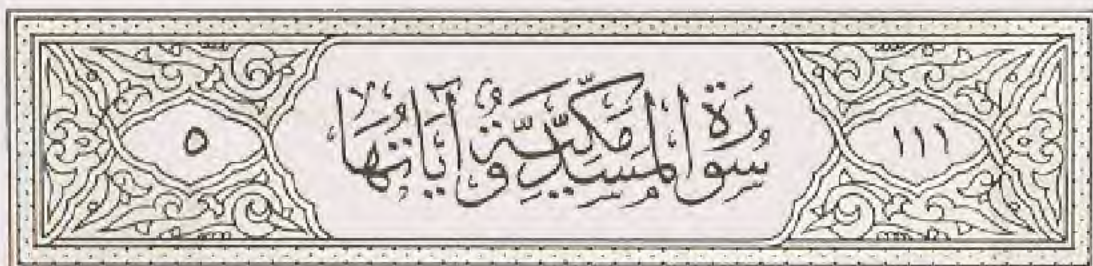 ١١١
سُورَةُ الْمَسَدِ مَكِّيَّةٌ وَآيَاتُهَا
٥